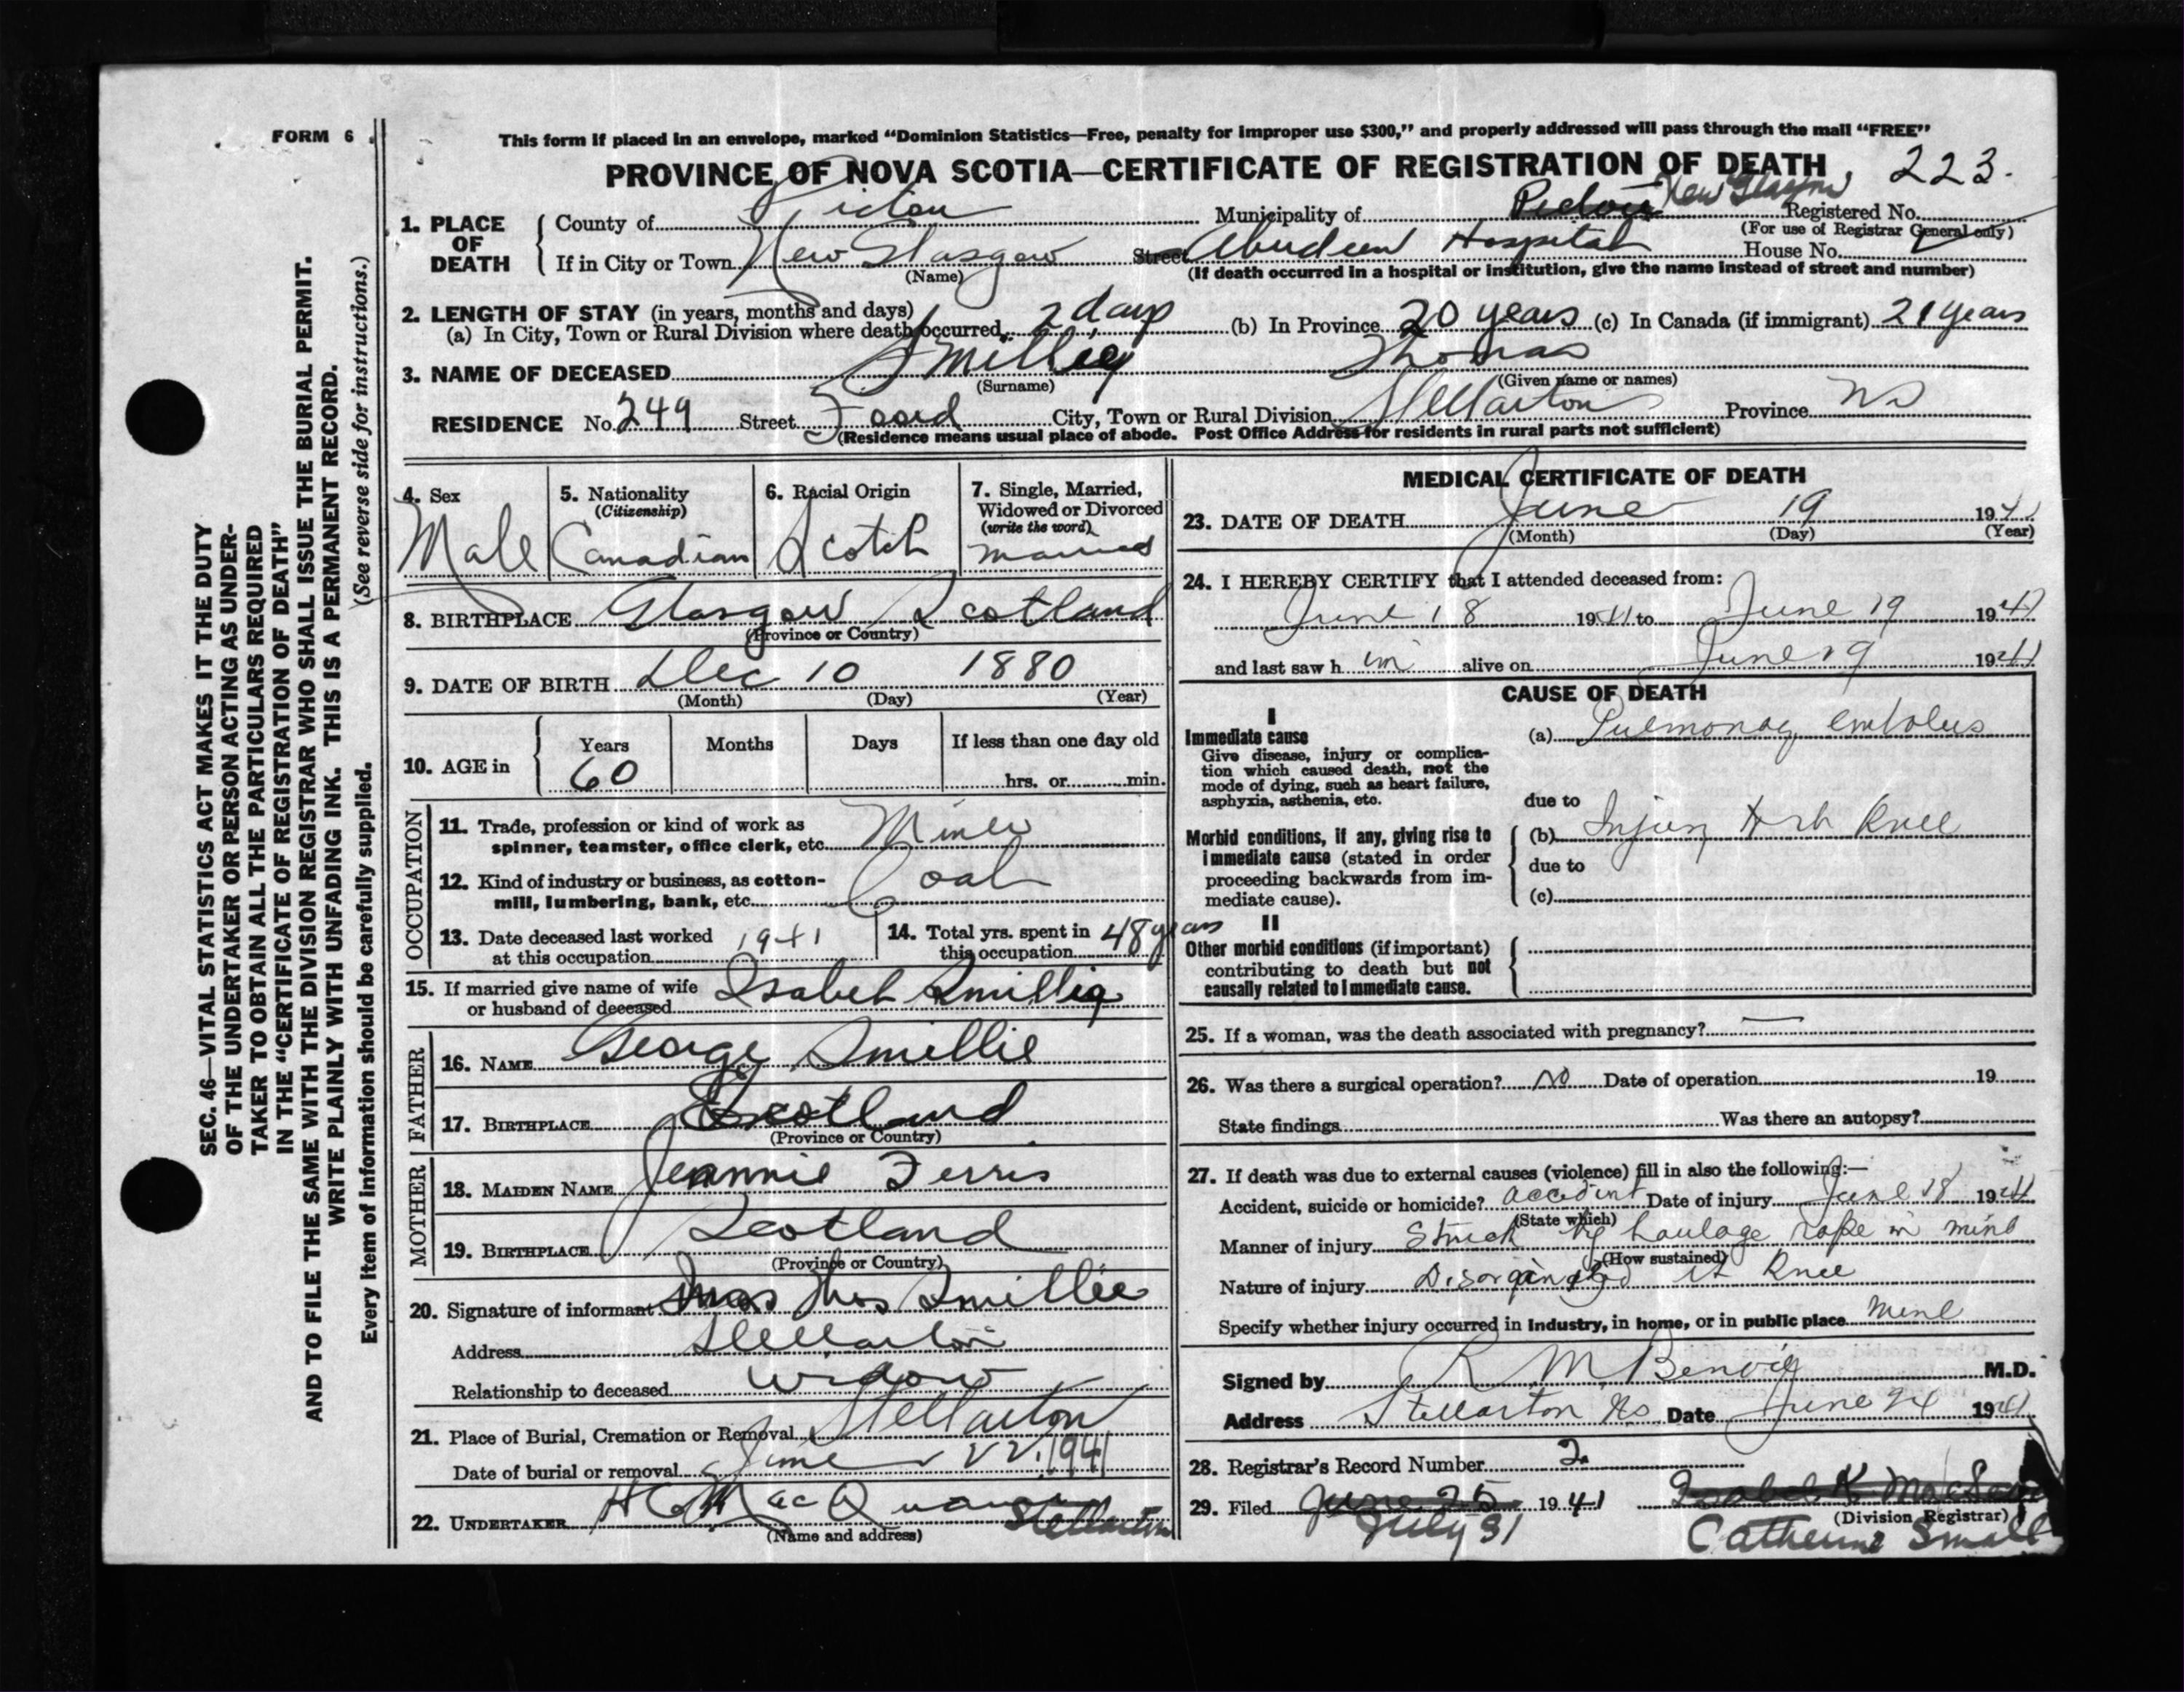 FORM 6
This form if placed in an envelope, marked “Dominion Statistics—Free, penalty for improper use $300,” and properly addressed will pass through the mail “FREE”
PROVINCE OF NOVA SCOTIA—CERTIFICATE OF REGISTRATION OF DEATH 223.
1. PLACE OF DEATH
County of Pictou Municipality of Pictou New Glasgow Registered No.
(For use of Registrar General only)
If in City or Town New Glasgow Street Aberdeen Hospital House No.
(Name) (If death occurred in a hospital or institution, give the name instead of street and number)
2. LENGTH OF STAY (in years, months and days)
(a) In City, Town or Rural Division where death occurred 2 days (b) In Province 20 years (c) In Canada (if immigrant) 21 years
3. NAME OF DECEASED Smillie Thomas
(Surname) (Given name or names)
RESIDENCE No. 249 Street Foord City, Town or Rural Division Stellarton Province NS
(Residence means usual place of abode. Post Office Address for residents in rural parts not sufficient)
4. Sex Male
5. Nationality (Citizenship) Canadian
6. Racial Origin Scotch
7. Single, Married, Widowed or Divorced (write the word) married
8. BIRTHPLACE Glasgow Scotland
(Province or Country)
9. DATE OF BIRTH Dec 10 1880
(Month) (Day) (Year)
10. AGE in Years 60 Months Days If less than one day old
hrs. or min.
OCCUPATION
11. Trade, profession or kind of work as
spinner, teamster, office clerk, etc. Miner
12. Kind of industry or business, as cotton-
mill, lumbering, bank, etc. Coal
13. Date deceased last worked
at this occupation 1941
14. Total yrs. spent in
this occupation 48 years
15. If married give name of wife
or husband of deceased Isabel Smillie
FATHER
16. NAME George Smillie
17. BIRTHPLACE Scotland
(Province or Country)
MOTHER
18. MAIDEN NAME Jeannie Ferris
19. BIRTHPLACE Scotland
(Province or Country)
20. Signature of informant Mrs Thos Smillie
Address Stellarton
Relationship to deceased widow
21. Place of Burial, Cremation or Removal Stellarton
Date of burial or removal June 22. 1941
22. UNDERTAKER Stellarton
(Name and address)
MEDICAL CERTIFICATE OF DEATH
23. DATE OF DEATH June 19 1941
(Month) (Day) (Year)
24. I HEREBY CERTIFY that I attended deceased from:
June 18 1941 to June 19 1941
and last saw h im alive on June 19 1941
CAUSE OF DEATH
I
Immediate cause
Give disease, injury or complica-
tion which caused death, not the
mode of dying, such as heart failure,
asphyxia, asthenia, etc.
(a) Pulmonary embolus
due to
Morbid conditions, if any, giving rise to
immediate cause (stated in order
proceeding backwards from im-
mediate cause).
(b) Injury knee
due to
(c)
II
Other morbid conditions (if important)
contributing to death but not
causally related to immediate cause.
25. If a woman, was the death associated with pregnancy? —
26. Was there a surgical operation? No Date of operation 19
State findings Was there an autopsy?
27. If death was due to external causes (violence) fill in also the following:—
Accident, suicide or homicide? accident Date of injury June 18 1941
(State which)
Manner of injury Struck by haulage rope in mine
(How sustained)
Nature of injury knee
Specify whether injury occurred in industry, in home, or in public place mine
Signed by R M Benvie M.D.
Address Stellarton NS Date June 24 1941
28. Registrar's Record Number 2
29. Filed June 25 1941
July 31
(Division Registrar)
Catherine Small
SEC. 46—VITAL STATISTICS ACT MAKES IT THE DUTY
OF THE UNDERTAKER OR PERSON ACTING AS UNDER-
TAKER TO OBTAIN ALL THE PARTICULARS REQUIRED
IN THE “CERTIFICATE OF REGISTRATION OF DEATH”
AND TO FILE THE SAME WITH THE DIVISION REGISTRAR WHO SHALL ISSUE THE BURIAL PERMIT.
WRITE PLAINLY WITH UNFADING INK. THIS IS A PERMANENT RECORD.
Every item of information should be carefully supplied. (See reverse side for instructions.)